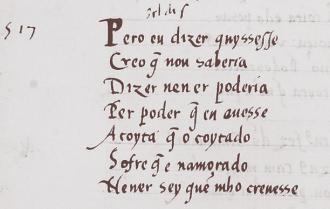 517
Pero eu dizer quysesse
Creo q̃ non saberia
Dizer nen er poderia
Per poder q̃ en ouesse
A coyta q̃ o coytado
Sofre q̃ e namorado
Nen er sey quẽ mho crevesse